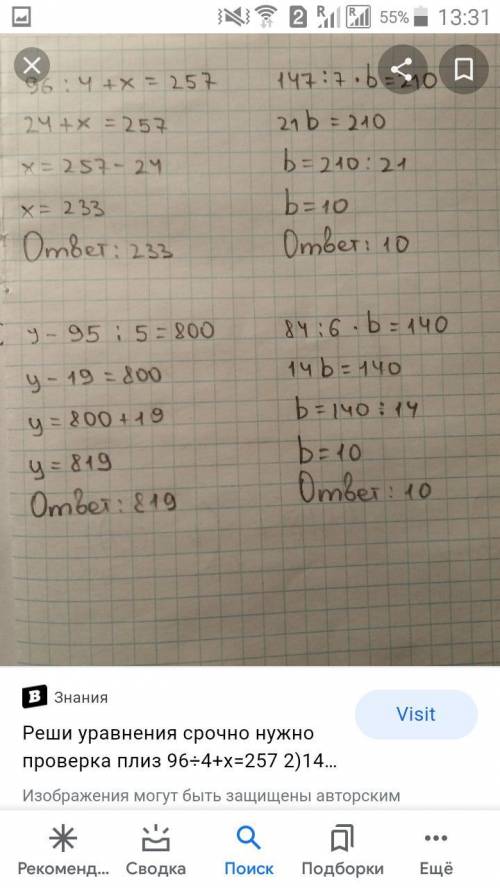 2 R R 55% 13:31
96 : 4 + x = 257
24 + x = 257
x = 257 - 24
x = 233
Ответ: 233
147 : 7 · b = 210
21b = 210
b = 210 : 21
b = 10
Ответ: 10
y - 95 : 5 = 800
y - 19 = 800
y = 800 + 19
y = 819
Ответ: 819
84 : 6 · b = 140
14b = 140
b = 140 : 14
b = 10
Ответ: 10
B Знания
Visit
Реши уравнения срочно нужно
проверка плиз 96÷4+x=257 2)14...
Изображения могут быть защищены авторским
Рекоменд... Сводка Поиск Подборки Ещё